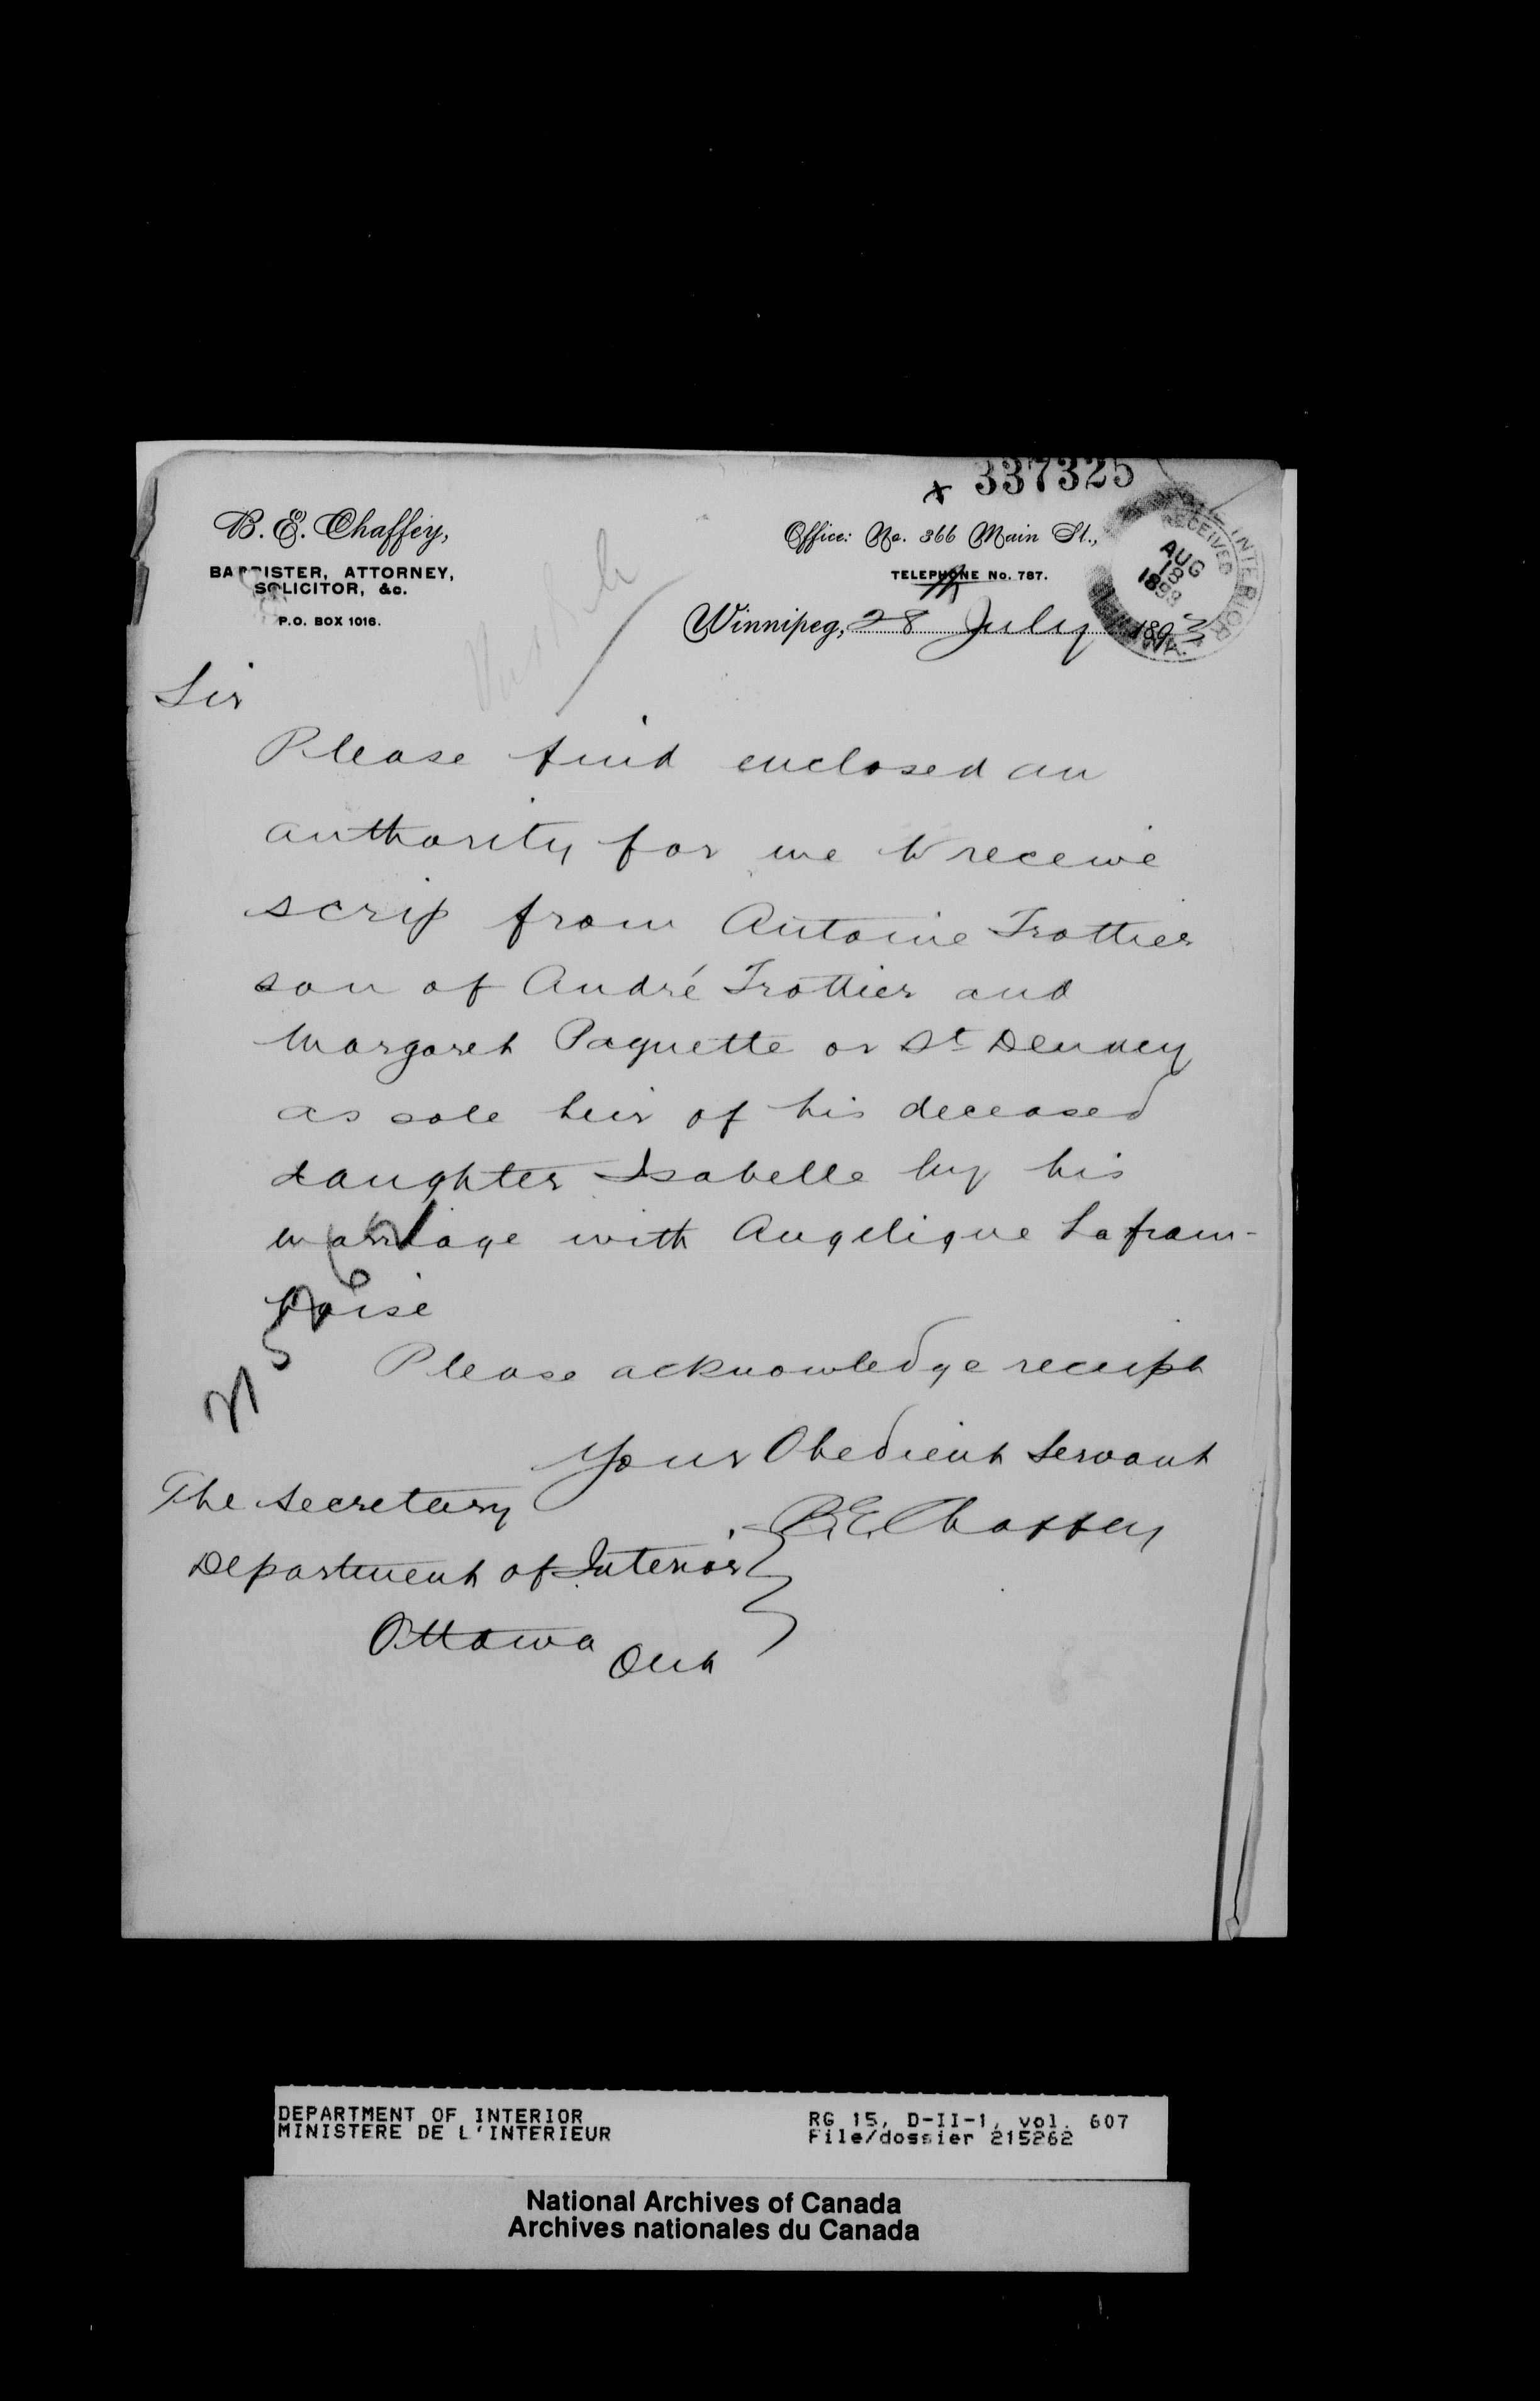 337325
B. E. Chaffey,
BARRISTER, ATTORNEY,
SOLICITOR, &c.
P.O. BOX 1016.
Office: No. 366 Main St.,
TELEPHONE No. 787.
Winnipeg, 28 July 1893
RECEIVED
AUG
18
1893
INTERIOR
Sir
Please find enclosed an
authority for me to receive
scrip from Antoine Trottier
son of André Trottier and
Margaret Paquette or St Denney
as sole heir of his deceased
daughter Isabelle by his
marriage with Angelique Lafram-
boise
Please acknowledge receipt
Your Obedient Servant
B.E. Chaffey
The Secretary
Department of Interior
Ottawa
Ont
DEPARTMENT OF INTERIOR
MINISTERE DE L'INTERIEUR
RG 15, D-II-1, vol. 607
File/dossier 215262
National Archives of Canada
Archives nationales du Canada